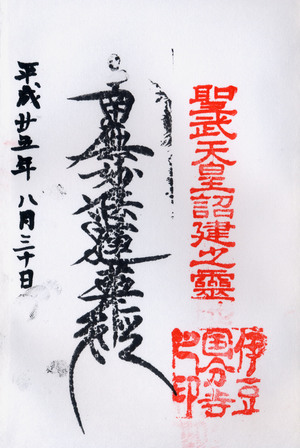 聖武天皇詔建之霊
伊豆
国分寺
之印
南無妙法蓮華経
平成廿五年 八月三十日